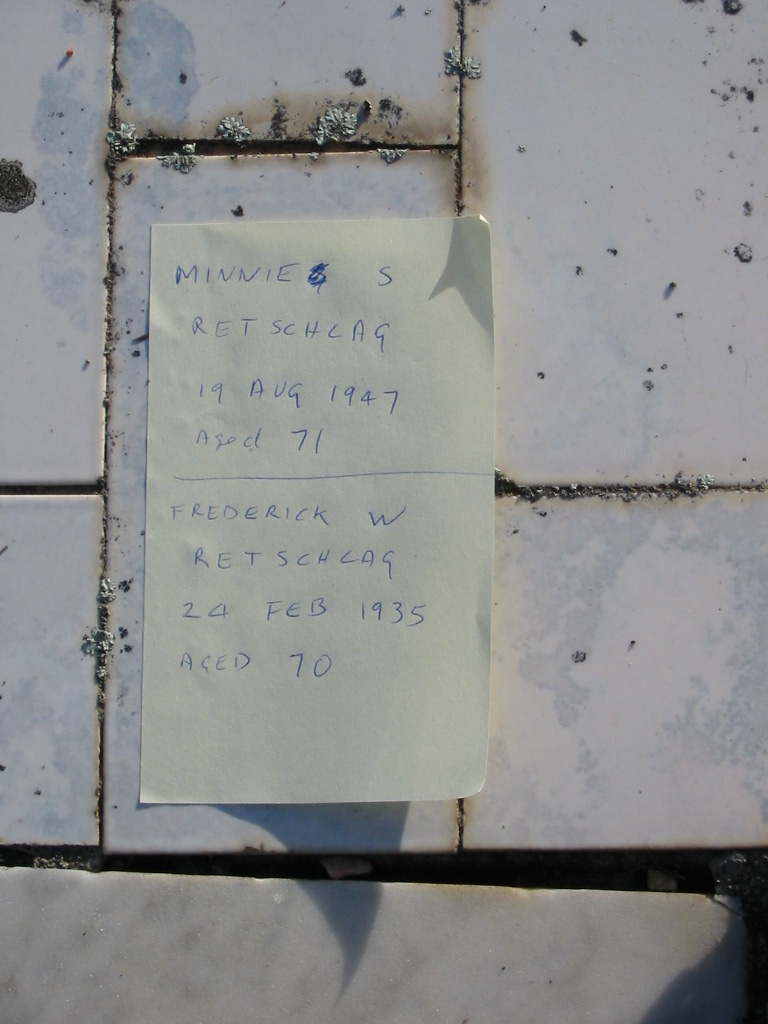 MINNIE S
RETSCHLAG
19 AUG 1947
Aged 71
FREDERICK W
RETSCHLAG
24 FEB 1935
AGED 70